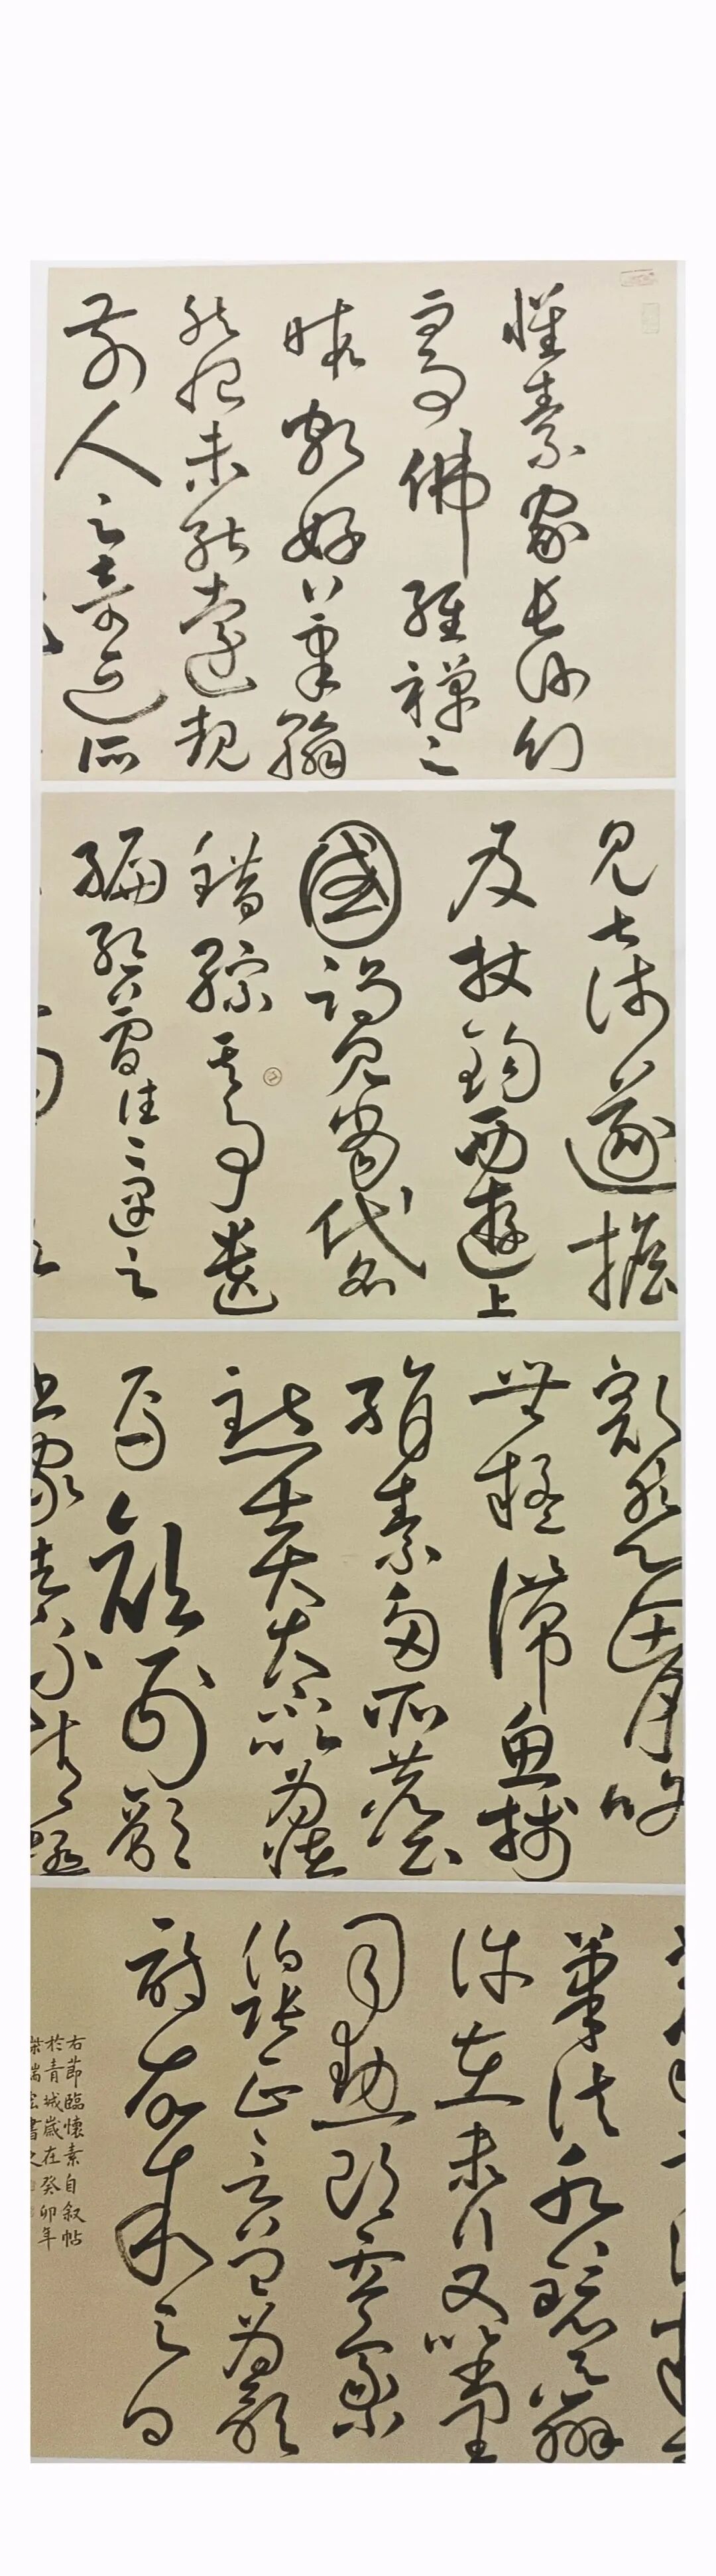 懷素家長沙幼
而事佛經禪之
暇頗好筆翰
然恨未能遠覩
前人之奇迹所
見甚淺遂擔
笈杖錫西遊上
國謁見當代名
錯綜其事遺
編絕簡往往遇之
豁然心胸略
無疑滯魚牋
絹素多所塵
點士大夫不以為怪
焉顏刑部
書家者流精極
筆法水鏡之辨
許在末行又以尚書
司勳郎盧象小宗
伯張正言曾為歌
詩故叙之曰
右節臨懷素自叙帖
於青城歲在癸卯年